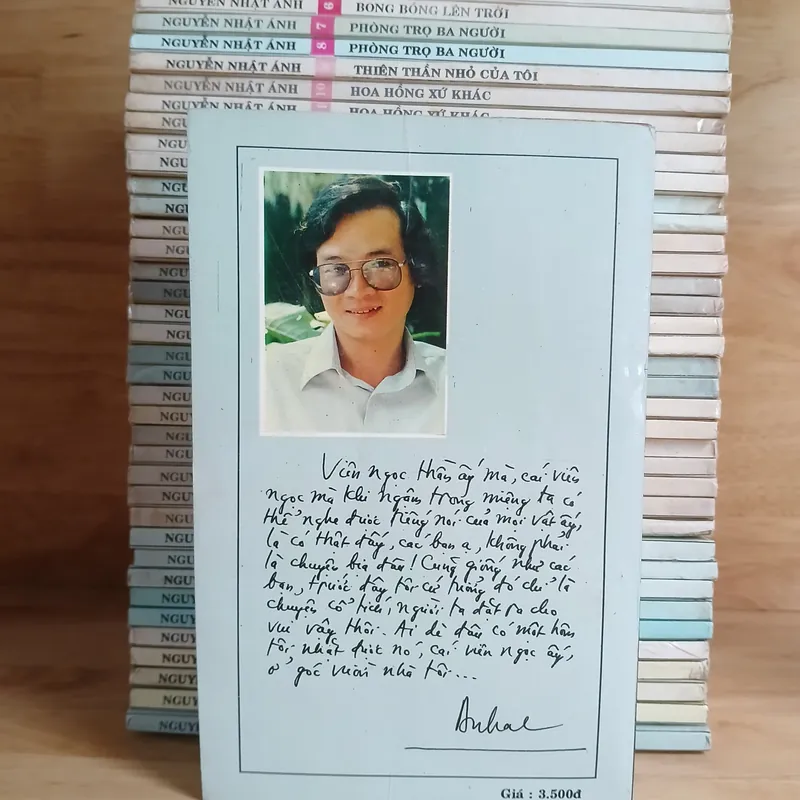 NGUYỄN NHẬT ÁNH 6 BONG BÓNG LÊN TRỜI
NGUYỄN NHẬT ÁNH 7 PHÒNG TRỌ BA NGƯỜI
NGUYỄN NHẬT ÁNH 8 PHÒNG TRỌ BA NGƯỜI
NGUYỄN NHẬT ÁNH THIÊN THẦN NHỎ CỦA TÔI
NGUYỄN NHẬT ÁNH 10 HOA HỒNG XỨ KHÁC
NGUYỄN NHẬT ÁNH HOA HỒNG XỨ KHÁC
Viên ngọc thần ấy mà, cái viên
ngọc mà khi ngậm trong miệng ta có
thể nghe được tiếng nói của mọi vật ấy,
là có thật đấy, các bạn ạ, không phải
là chuyện bịa đâu! Cũng giống như các
bạn, trước đây tôi cứ tưởng đó chỉ là
chuyện cổ tích, người ta đặt ra cho
vui vậy thôi. Ai dè đâu có một hôm
tôi nhặt được nó, cái viên ngọc ấy,
ở góc vườn nhà tôi...
Giá : 3.500đ